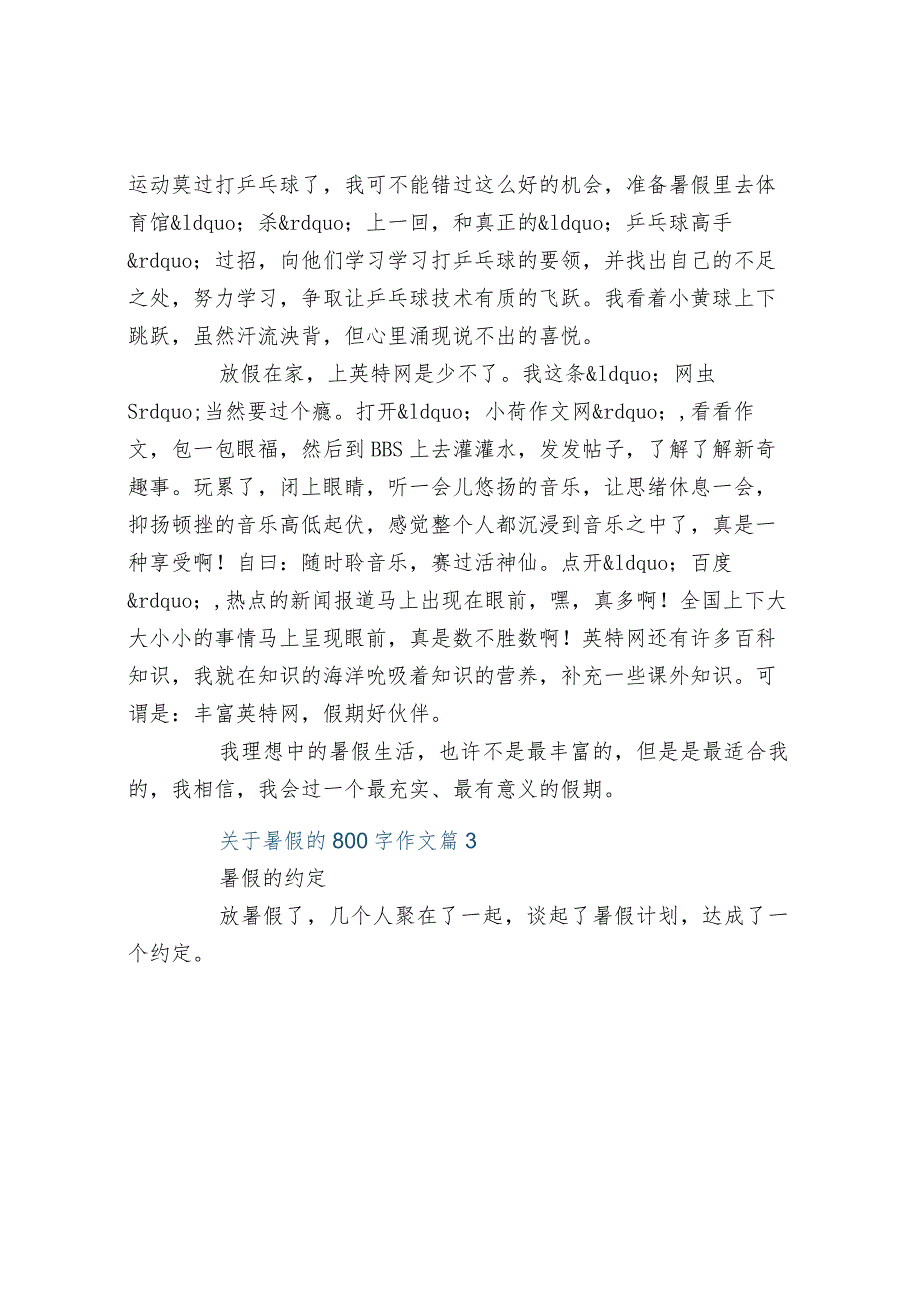 运动莫过打乒乓球了，我可不能错过这么好的机会，准备暑假里去体
育馆&ldquo；杀&rdquo；上一回，和真正的&ldquo；乒乓球高手
&rdquo；过招，向他们学习学习打乒乓球的要领，并找出自己的不足
之处，努力学习，争取让乒乓球技术有质的飞跃。我看着小黄球上下
跳跃，虽然汗流泱背，但心里涌现说不出的喜悦。
放假在家，上英特网是少不了。我这条&ldquo；网虫
Srdquo;当然要过个瘾。打开&ldquo；小荷作文网&rdquo；,看看作
文，包一包眼福，然后到 BBS 上去灌灌水，发发帖子，了解了解新奇
趣事。玩累了，闭上眼睛，听一会儿悠扬的音乐，让思绪休息一会，
抑扬顿挫的音乐高低起伏，感觉整个人都沉浸到音乐之中了，真是一
种享受啊！自曰：随时聆音乐，赛过活神仙。点开&ldquo；百度
&rdquo；,热点的新闻报道马上出现在眼前，嘿，真多啊！全国上下大
大小小的事情马上呈现眼前，真是数不胜数啊！英特网还有许多百科
知识，我就在知识的海洋吮吸着知识的营养，补充一些课外知识。可
谓是：丰富英特网，假期好伙伴。
我理想中的暑假生活，也许不是最丰富的，但是是最适合我
的，我相信，我会过一个最充实、最有意义的假期。
关于暑假的 800 字作文篇 3
暑假的约定
放暑假了，几个人聚在了一起，谈起了暑假计划，达成了一
个约定。